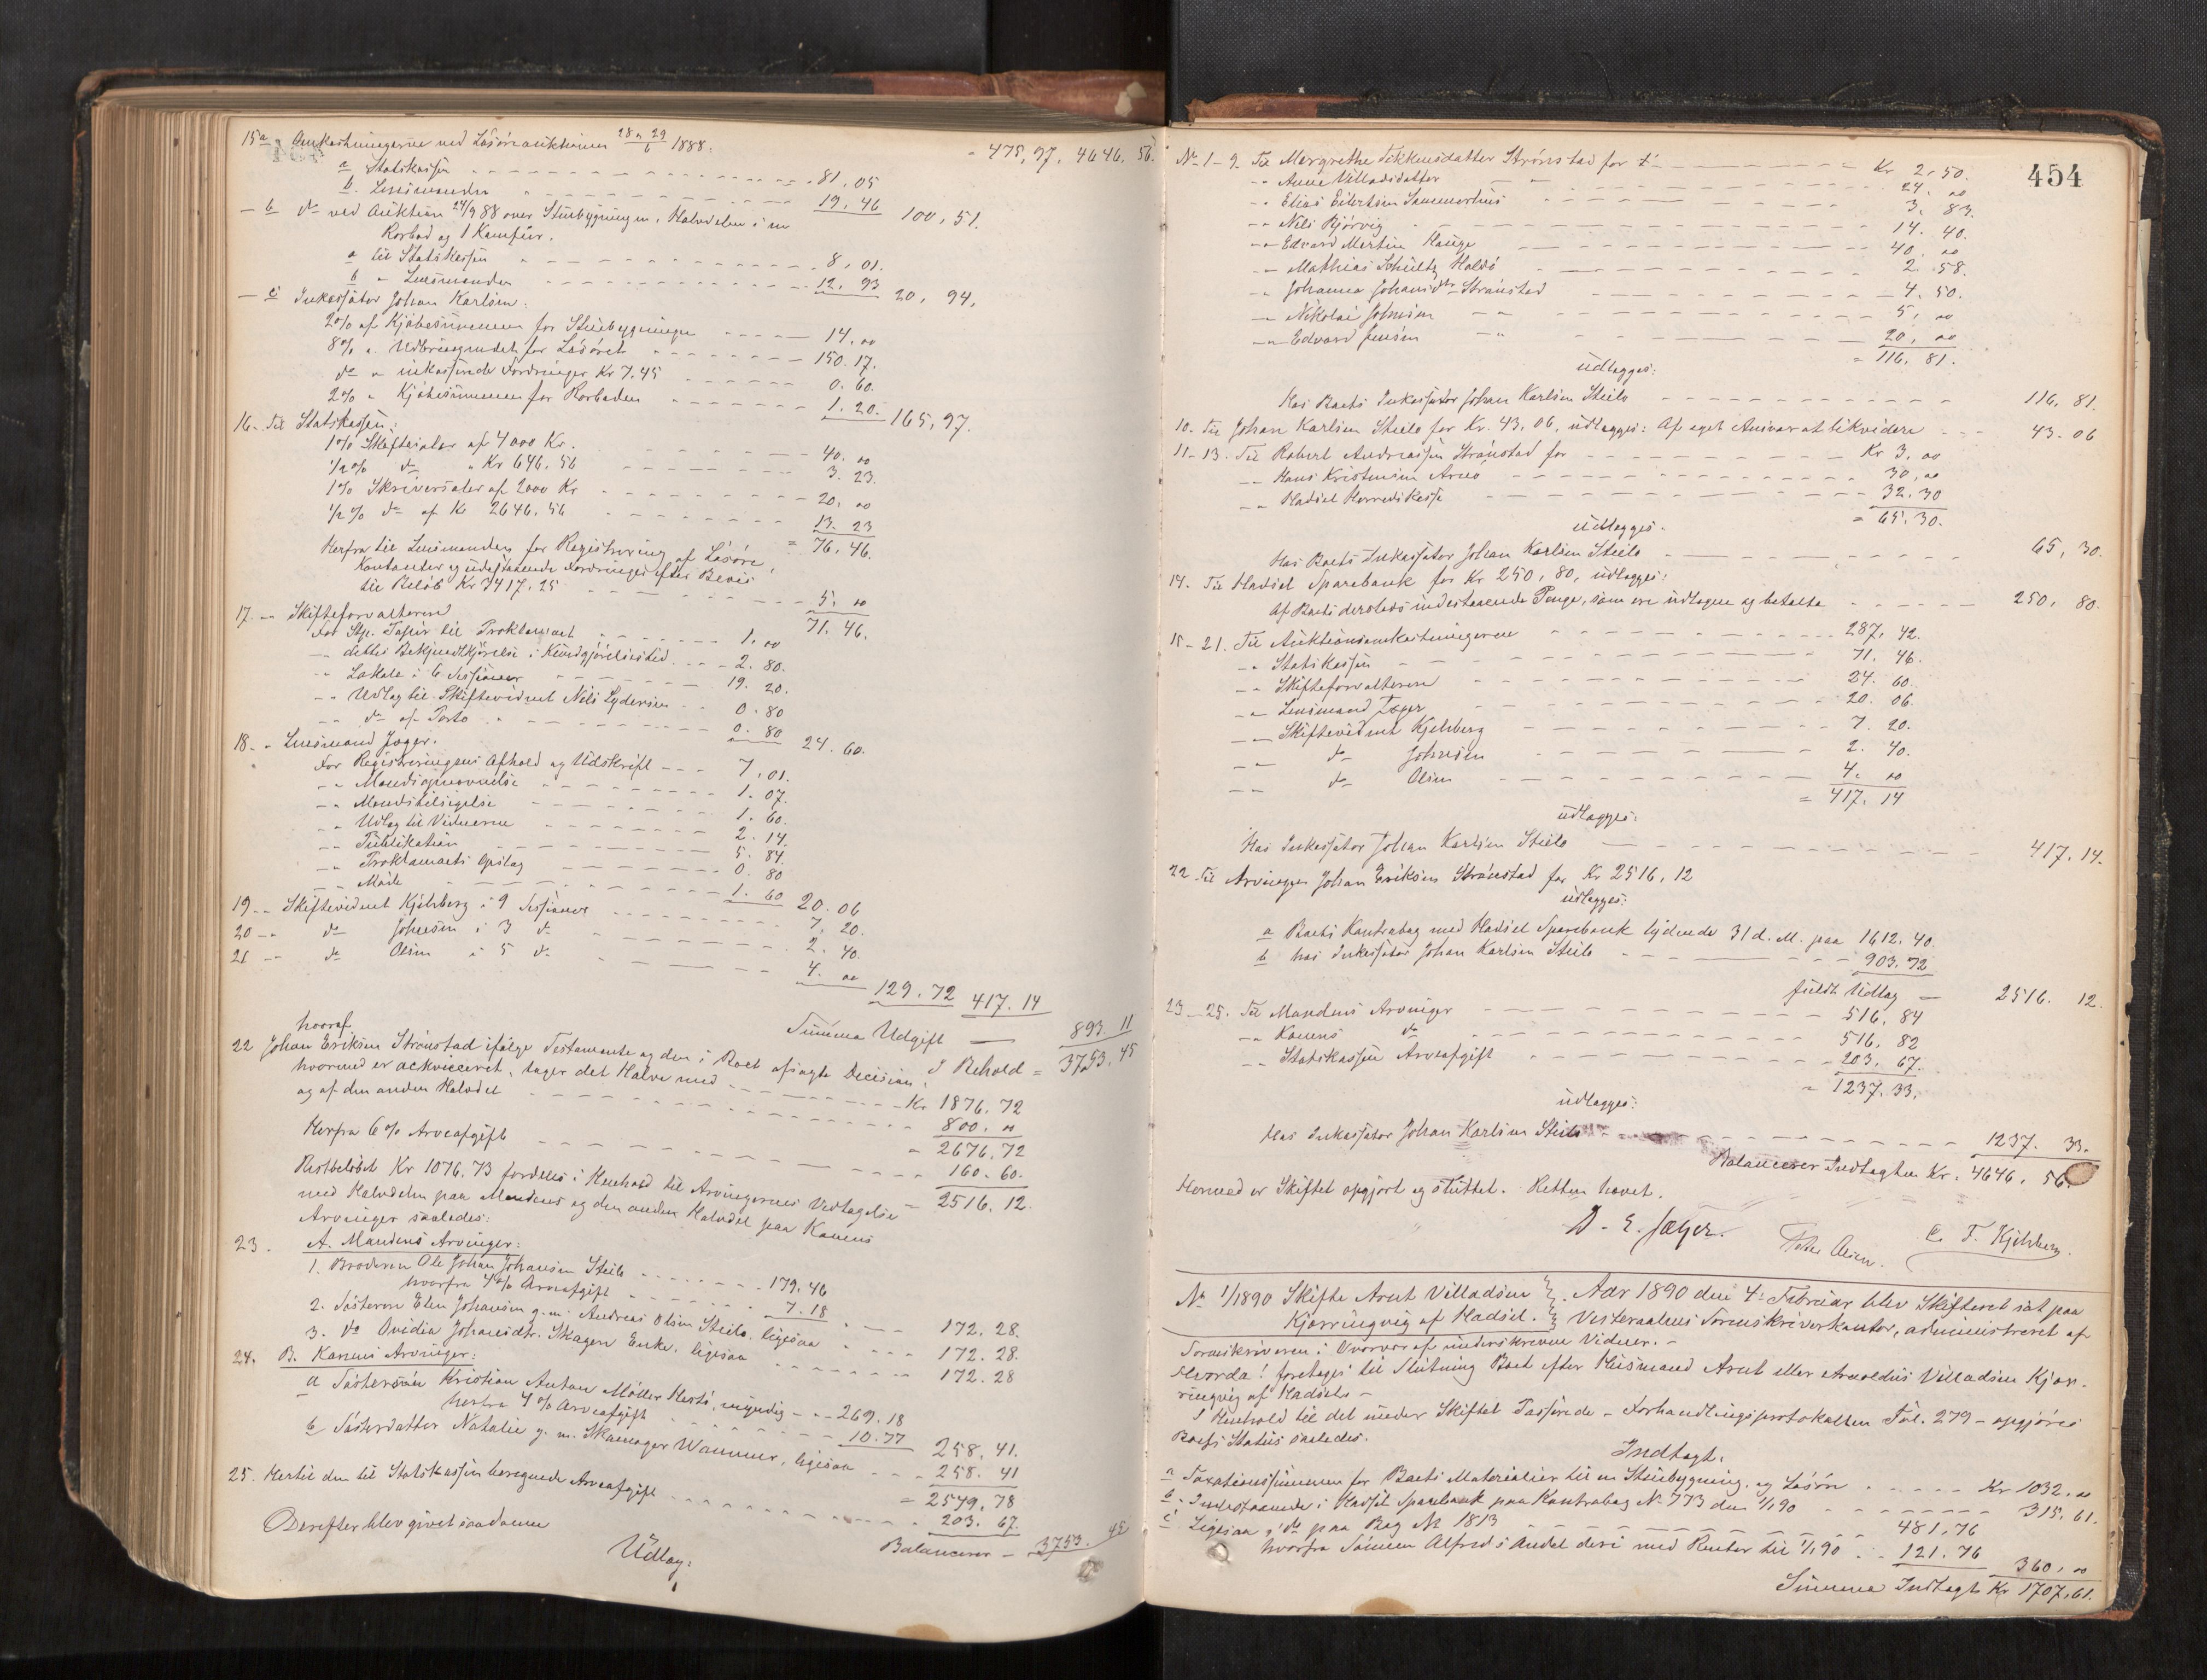 15a Omkostningerne ved Løsøreauktionen 28 n 29/6 1888. " 475,97. 4646.56.
a Statskassen 81,05
b. Lensmanden " 19,46 100,51.
- b do ved Auktion 24/9 88 over Stuebygningen, Halvdelen i en
Rorbod og 1 Komfur.
a til Statskassen " 8,01.
b " Lensmanden 12,93 20,94.
- c Inkassator Johan Karlsen:
2% af Kjøbesummen for Stuebygningen 14.00
8% " Udbringendet for Løsøret 150.17.
do " inkasserede Fordringer Kr 7.45 0.60.
2% " Kjøbesummen for Rorboden 1.20. 165,97.
16. Til Statskassen:
1% Skifteafer af 4000 Kr. 40.00
1/2% do " Kr 646,56 3.23.
1% Skriversaler af 2000 Kr 20.00
1/2% do af Kr 2646,56 13.23
= 76,46.
Herfra til Lensmanden for Registrering af Løsøre,
Kontanter og udestaaende Fordringer efter Bevis
til Beløb Kr 3417,25 5.00
71.46.
17. " Skifteforvalteren
For Stp. Papir til Proklamaet 1.00
" dettes Bekjendtgjørelse i Kundgjørelsestid. 2.80.
" Lokale i 6 Sessioner 19.20.
" Udlag til Skiftevidnet Nils Lydersen 0.80
" do af Porto 0.80 24.60.
18. " Lensmand Jæger.
For Registreringens Afhold og Udskrift 7,01.
" Mandsopnævnelse 1.07.
" Mandstilsigelse 1.60.
" Udlag til Vidnerne 2.14.
" Publikation 5.84.
" Proklamaets Opslag 0.80
" Møde 1.60 20.06
19 " Skiftevidnet Kjelsberg i 9 Sessioner 7.20.
20 " do Johnsen i 3 do 2.40.
21 " do Olsen i 5 do 4.00 129.72 417.14
Summa Udgift — 893.11
I Behold = 3753.45
hvoraf
22 Johan Eriksen Strønstad ifølge Testamente og den i Boet afsagte Decision,
hvormed er ackviceret, tager det Halve med Kr 1876.72
og af den anden Halvdel 800.00
= 2676,72
Herfra 6% Arveafgift 160.60.
= 2516.12.
Restbeløbet Kr 1076.73 fordeles i Henhold til Arvingernes Vedtagelse
med Halvdelen paa Mandens og den anden Halvdel paa Konens
Arvinger saaledes:
23. A. Mandens Arvinger:
1. Broderen Ole Johan Johansen Steilo 179.46
hvorfra 4% Arveafgift 7.18 172.28.
2. Søsteren Elen Johansen g. m. Andreas Olsen Steilo, ligesaa 172.28.
3. do Ovidia Johansdtr. Skagen Enke, ligesaa 172.28
24. B. Konens Arvinger:
a Søstersøn Kristian Anton Møller Hestø, myndig 269.18
herfra 4% Arveafgift 10.77 258,41.
b Søsterdatter Natalie g. m. Skomager Wammer, ligesaa 258.41
= 2549.78
25. Hertil den til Statskassen beregnede Arveafgift 203.67.
Balancerer — 3753.45
Derefter blev givet saadanne
Udlæg:
454
No 1-9. Til Mergrethe Fikkensdatter Strønstad for Kr 2.50.
" " Anne Villadsdatter 24.00
" " Elias Eilertsen Sammerhus 3.83.
" " Nils Bjørvig 14.40.
" " Edvard Martin Hauge 40.00
" " Mathias Schultz Haldø 2.58.
" " Johanna Johansdtr Strønstad 4.50.
" " Nikolai Johnsen " " 5.00
" " Edvard Jensen " " 20.00
= 116.81.
udlægges:
Hos Boets Inkassator Johan Karlsen Steilo 116.81.
10. Til Johan Karlsen Steilo for Kr. 43,06, udlægges: Af eget Ansvar at likvidere 43.06
11-13. Til Robert Andreassen Strønstad for Kr 3.00
" " Hans Kristensen Arnø 30.00
" " Hadsel Herredskasse 32.30
= 65.30.
udlægges.
Hos Boets Inkassator Johan Karlsen Steilo 65,30.
14. Til Hadsel Sparebank for Kr 250,80, udlægges:
Af Boets dersteds indestaaende Penge, som ere udtagne og betalte 250,80.
15-21. Til Auktionsomkostningerne 287,42.
" " Statskassen 71.46.
" " Skifteforvalteren 24.60.
" " Lensmand Jæger 20.06.
" " Skiftevidnet Kjelsberg 7.20.
" " do Johnsen 2.40.
" " do Olsen 4.00
= 417.14
udlægges:
Hos Inkassator Johan Karlsen Steilo 417.14.
22. Til Arvingen Johan Eriksen Strønstad for Kr 2516,12
udlægges:
a Boets Kontrabog med Hadsel Sparebank lydende 31 d. M. paa 1612.40.
b hos Inkassator Johan Karlsen Steilo 903.72
fuldt Udlæg — 2516.12.
23-25. Til Mandens Arvinger 516,84
" " Konens do 516,82
" " Statskassen Arveafgift 203.67.
= 1237.33.
udlægges:
Hos Inkassator Johan Karlsen Steilo 1237.33.
Balancerer Indtægten Kr. 4646.56.
Hermed er Skiftet opgjort og sluttet. Retten hævet.
D. E. Jæger. Peder Olsen. C. F. Kjelsberg.
No 1/1890 Skifte Arnt Villadsen Aar 1890 den 4de Februar blev Skifteret sat paa
Kjørringvig af Hadsel. Vesteraalens Sorenskriverkontor, administreret af
Sorenskriveren i Overvær af underskrevne Vidner. -
Hvorda! foretages til Slutning Boet efter Husmand Arnt eller Arnoldus Villadsen Kjør-
ringvig af Hadsels -
I Henhold til det under Skiftet Passerede - Forhandlingsprotokollen Fol. 279 - opgjøres
Boets Status saaledes.
Indtægt.
a Taxationssummen for Boets Materialier til en Stuebygning og Løsøre Kr 1032.00
b. Indestaaende i Hadsel Sparebank paa Kontrabog No 773 den 1/1 90 315.61.
c Ligesaa i do paa Bog No 1813 481,76
hvorfra Sønnen Alfreds Andel deri med Renter til 1/1 90 121.76 360.00
Summa Indtægt Kr 1707,61.